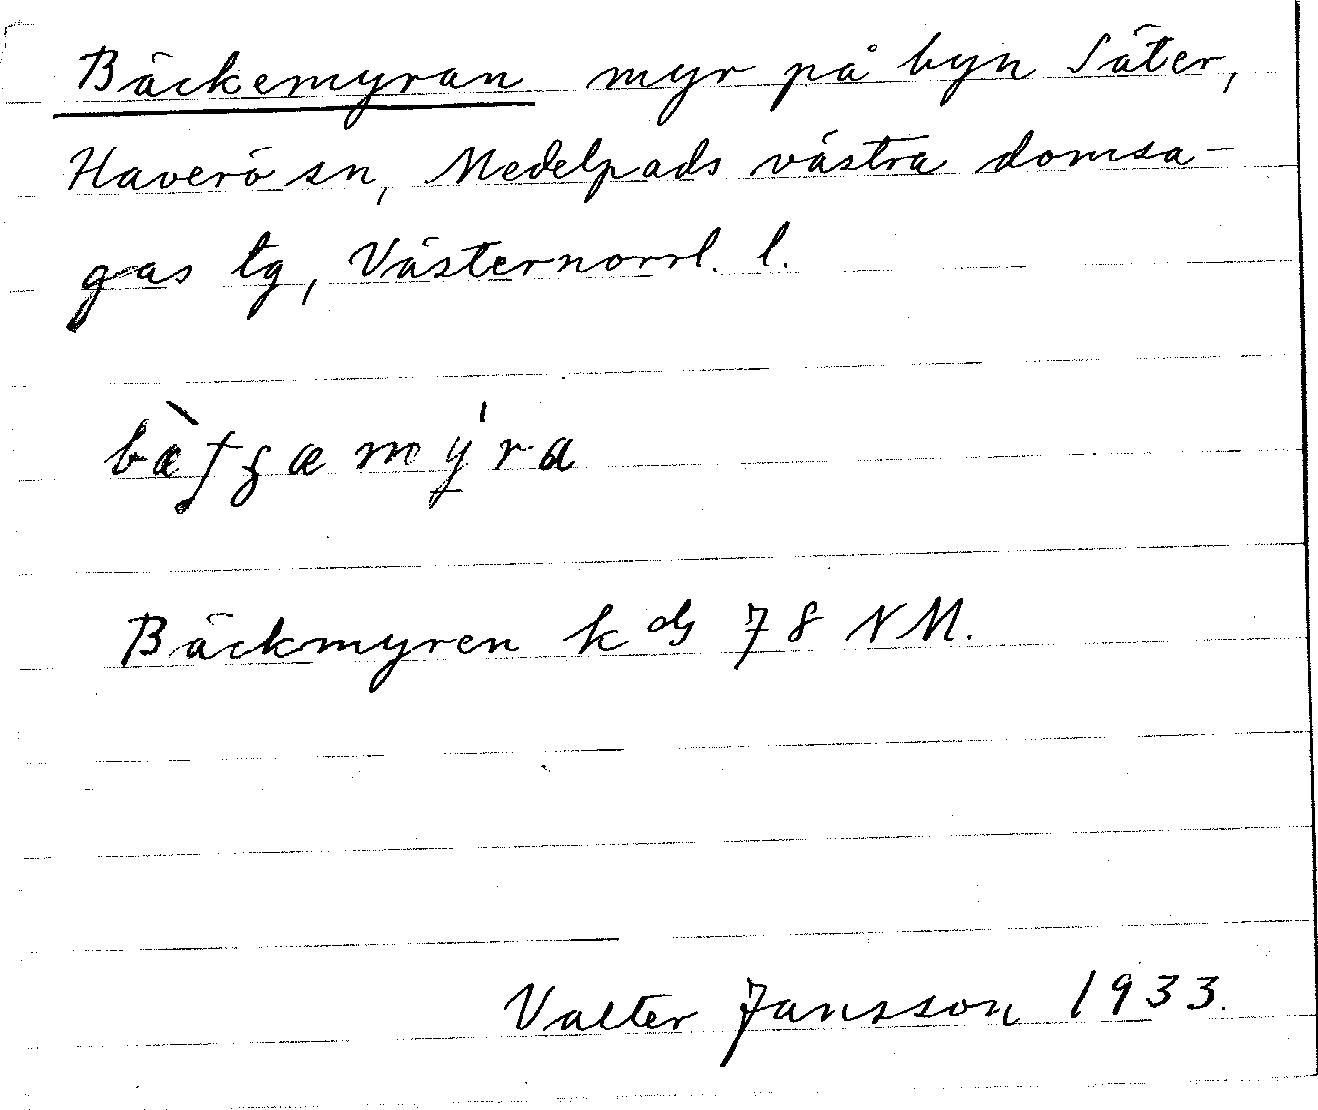 Bäckemyran myr på byn Säter,
Haverö sn, Medelpads västra domsa-
gas tg, Västernorrl. l.
Bäckmyren k bl 78 NM.
Valter Jansson 1933.